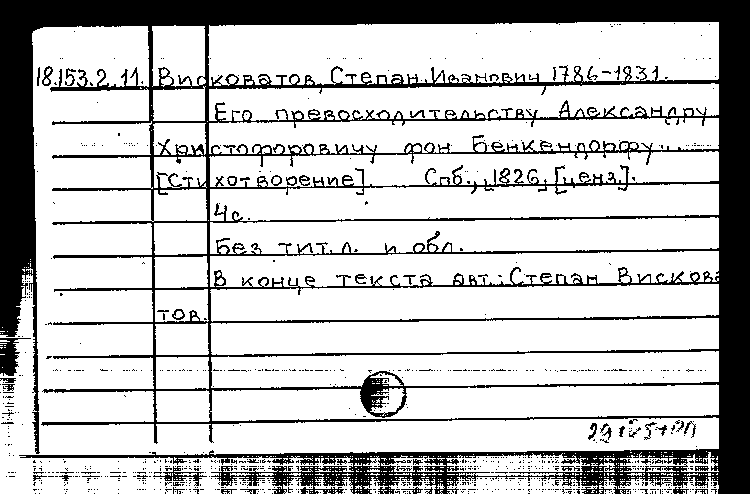 18.153.2.11. Висковатов, Степан Иванович, 1786-1831.
Его превосходительству Александру
Христофоровичу фон Бенкендорфу...
[Стихотворение]. Спб., 1826, [ценз].
4с.
Без тит. л. и обл.
В конце текста авт.: Степан Вискова
тов.